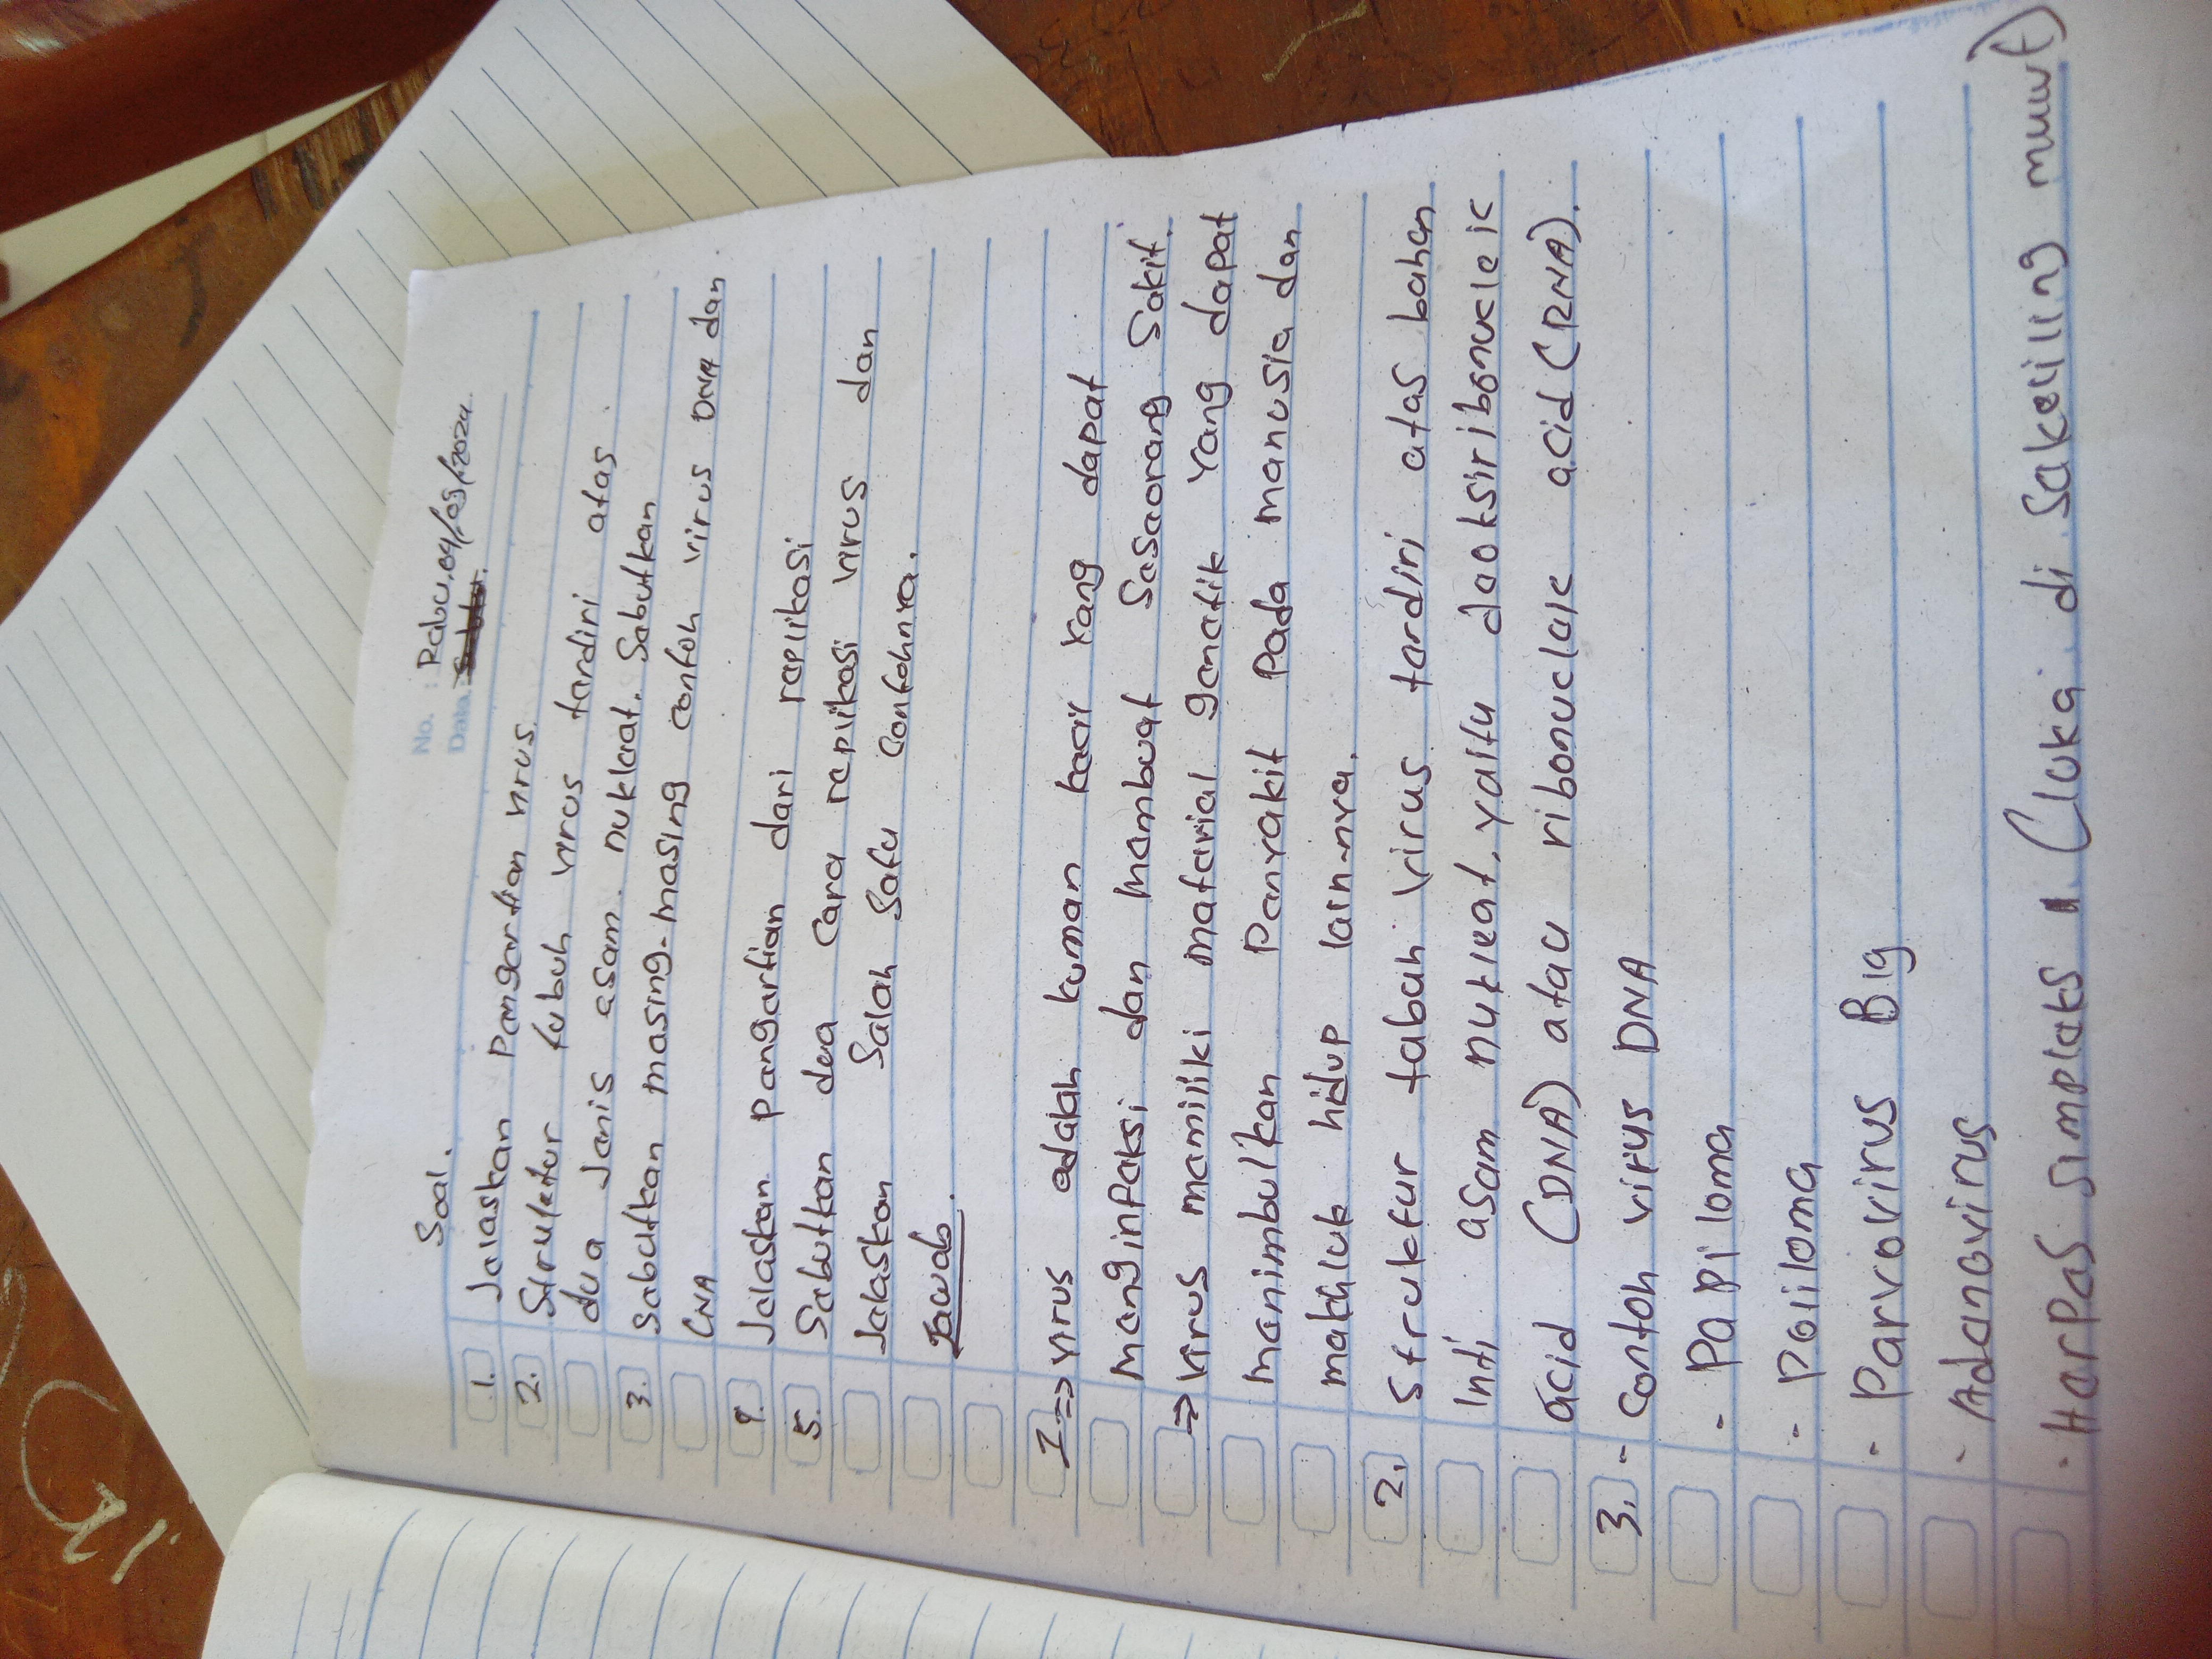 Soal.
Rabu, 04/09/2024
1. Jelaskan Pengertian virus.
2. Struktur tubuh virus terdiri atas
dua Jenis asam nukleat. Sebutkan
3. Sebutkan masing-masing contoh virus DNA dan
RNA
4. Jelaskan pengertian dari replikasi
5. Sebutkan dua cara replikasi virus dan
Jelaskan Salah Satu contohnya.
Jawab.
1 => virus adalah kuman kecil yang dapat
menginfeksi dan membuat Seseorang Sakit.
=> virus memiliki material genetik yang dapat
menimbulkan Penyakit Pada manusia dan
makhluk hidup lain-nya.
2. Struktur tubuh virus terdiri atas bahan
Inti asam nukleat, yaitu deoksiribonucleic
acid (DNA) atau ribonucleic acid (RNA).
3. - contoh virus DNA
- Papiloma
- Poliloma
- Parvovirus B19
- Adenovirus
- Herpes simpleks 1 (luka di sekeliling mulut)